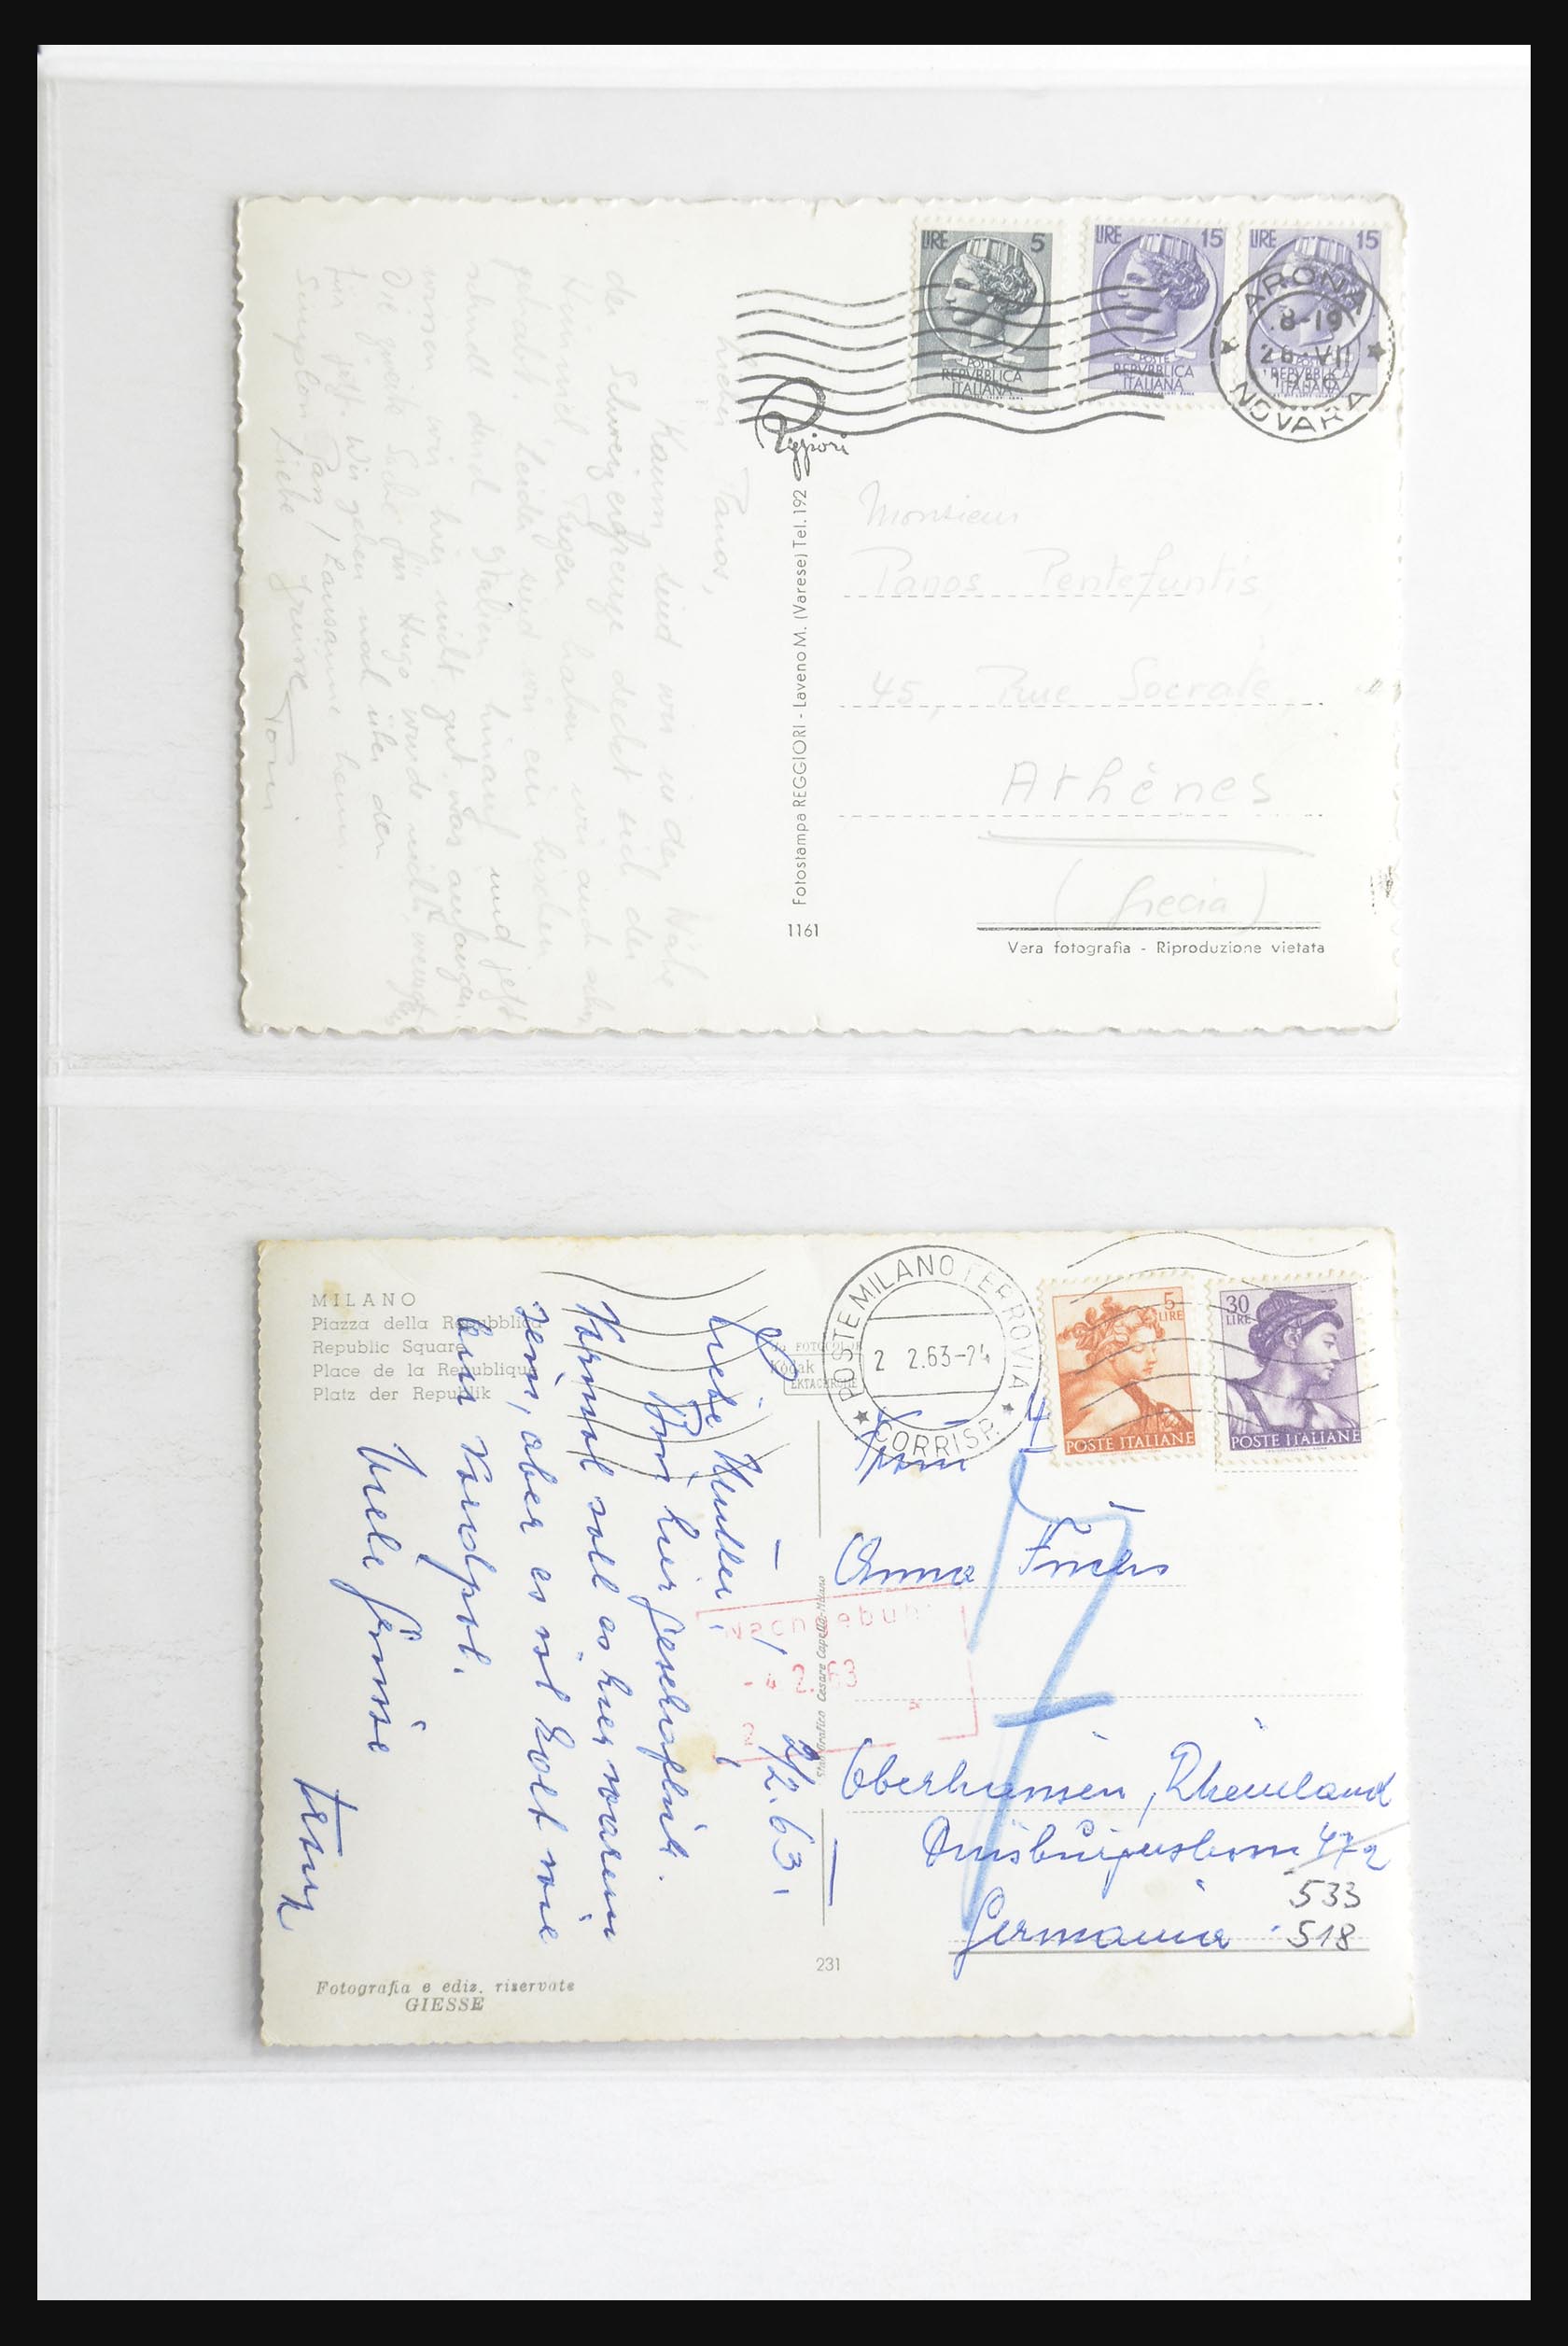 LIRE 5
POSTE
REPVBBLICA
ITALIANA
LIRE 15
POSTE
REPVBBLICA
ITALIANA
LIRE 15
POSTE
REPVBBLICA
ITALIANA
ARONA
8-19
28 VII
NOVARA
Reggiori
Fotostampa REGGIORI - Laveno M. (Varese) Tel. 192
1161
Lieber Panos,
Kaum sind wir in der Nähe
der Schweizergrenze deckt sich der
Himmel. Regen haben wir auch schon
gehabt. Leider sind wir ein bischen
schnell durch Italien hinauf und jetzt
wissen wir hier nicht gut was anfangen.
Die zweite Sache für Hugo wurde nichts,
für jetzt. Wir gehen noch über den
Simplon Pass / Lausanne heim.
Liebe Grüsse Toni
Monsieur
Panos Pentefuntis
45, Rue Socrate
Athènes
(Grecia)
Vera fotografia - Riproduzione vietata
MILANO
Piazza della Repubblica
Republic Square
Place de la Republique
Platz der Republik
FOTOCOLOR
Kodak
EKTACHROME
POSTE MILANO FERROVIA
2 2.63-24
CORRISP.
5
LIRE
POSTE ITALIANE
30
LIRE
POSTE ITALIANE
2/2.63.
Liebe Mutter,
Bin hier geschäftlich.
Normal soll es hier warm
sein, aber es ist kalt wie
am Nordpol.
Viele Grüsse
Nachgebühr
- 4 2. 63
2
Stab. Grafico Cesare Capello-Milano
Frau
Anna Fuchs
7
Oberhausen, Rheinland
Duisburgerstrasse 472
533
Germania 518
231
Fotografia e ediz. riservate
GIESSE